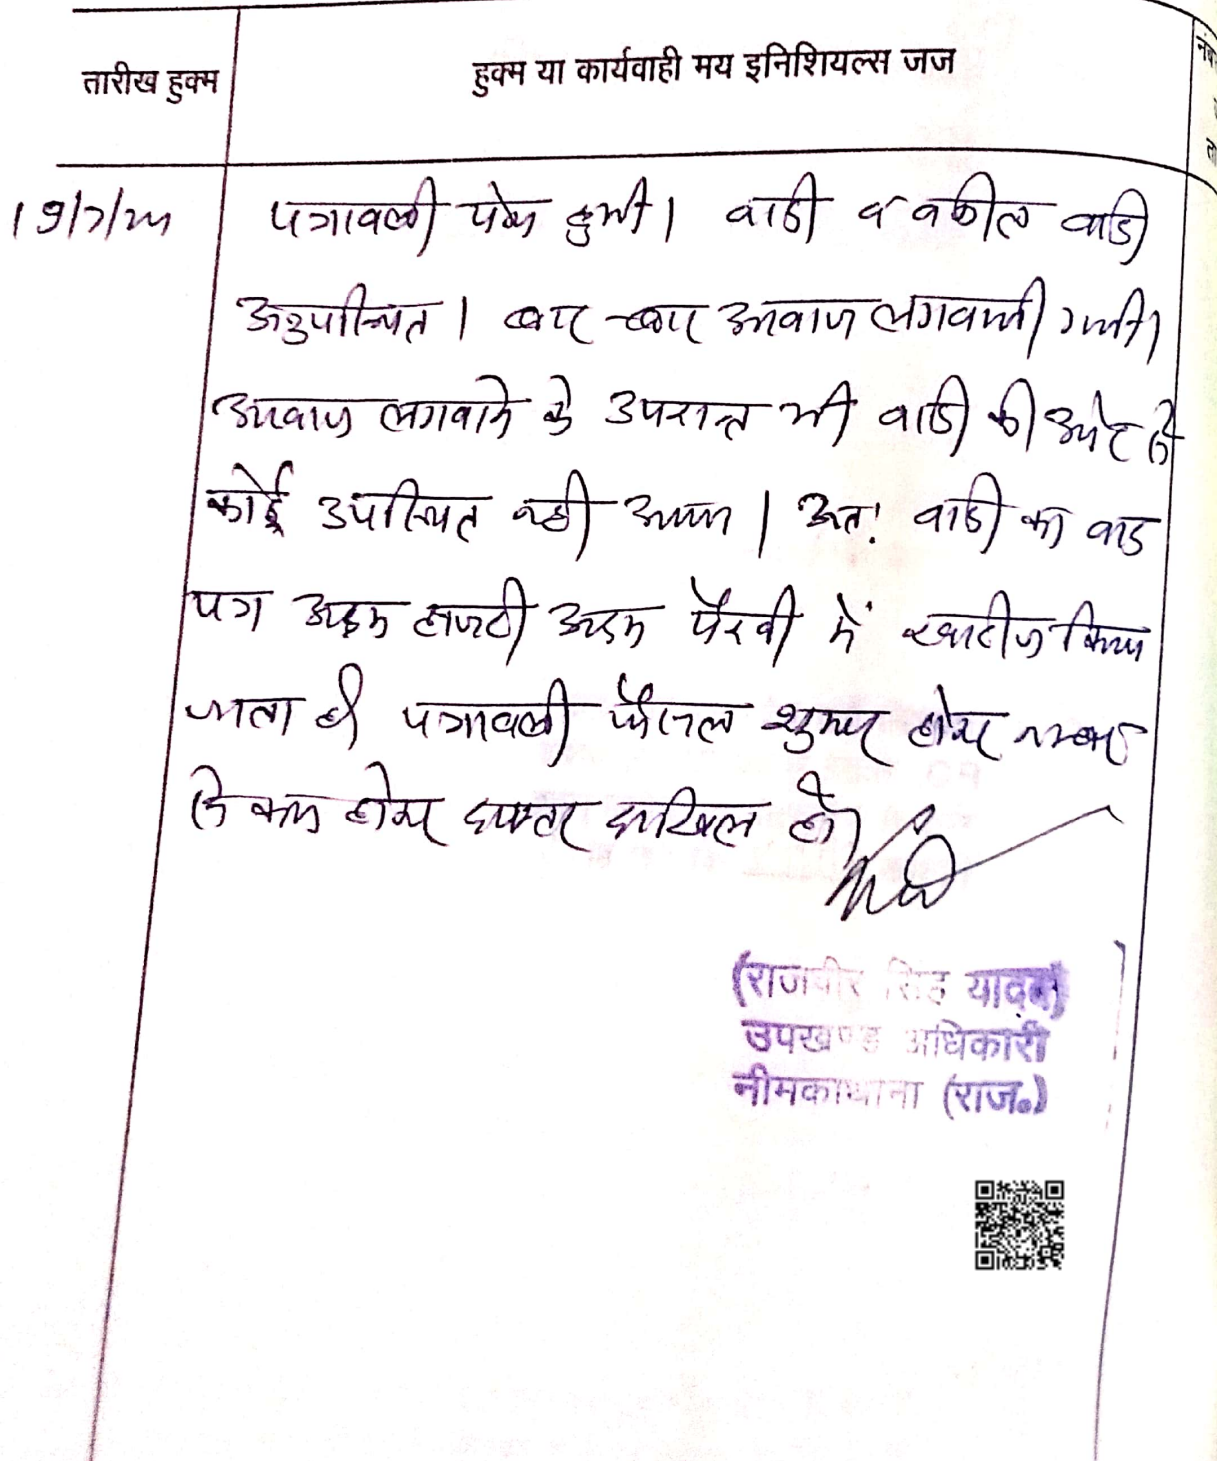 तारीख हुक्म
हुक्म या कार्यवाही मय इनिशियल्स जज
19/7/22
पत्रावली पेश हुयी। वादी व वकील वादी
अनुपस्थित। बार-बार आवाज लगवायी गयी।
आवाज लगवाने के उपरान्त भी वादी की ओर से
कोई उपस्थित नही आया। अतः वादी का वाद
पत्र अदम हाजरी अदम पैरवी में खारीज किया
जाता है। पत्रावली फैसल शुमार होकर नम्बर
से कम होकर दफ्तर दाखिल हो।
(राजवीर सिंह यादव)
उपखण्ड अधिकारी
नीमकाथाना (राज॰)